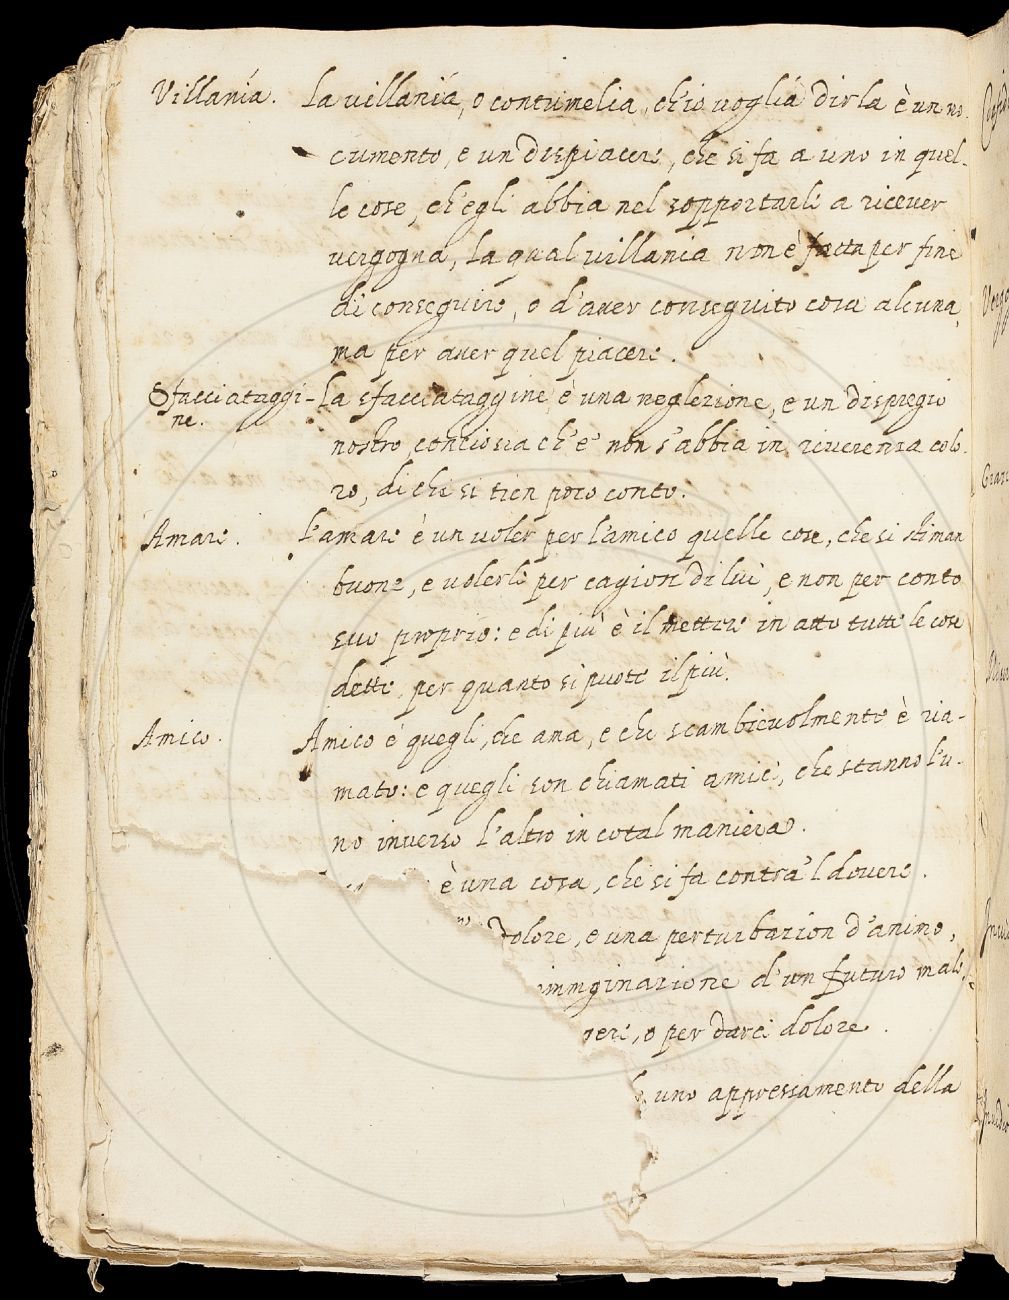 Villanía. La villaniá, o contumelia, ch'io voglia dirla è un no-
cumento, e un dispiacere, che si fa a uno in quel-
le cose, ch'egli abbia nel sopportarle a ricever
vergogna, la qual villania non è fatta per fine
di conseguire, o d'aver conseguito cosa alcuna,
ma per aver quel piacere.
Sfacciataggi- La sfacciataggine è una neglezione, e un dispregio
ne.
nostro, conciosia ch'e' non s'abbia in riverenza colo-
ro, di che si tien poco conto.
Amare. L'amare è un voler per l'amico quelle cose, che si stiman
buone, e volerle per cagion di lui, e non per conto
suo proprio: e di più è il mettere in atto tutte le cose
dette, per quanto si puote il più.
Amico. Amico è quegli, che ama, e che scambievolmente è ria-
mato: e quegli son chiamati amici, che stanno l'u-
no inverso l'altro in cotal maniera.
è una cosa, che si fa contra 'l dovere.
dolore, e una perturbazion d'animo,
immginazione d'un futuro male,
o per darci dolore.
uno appressamento della